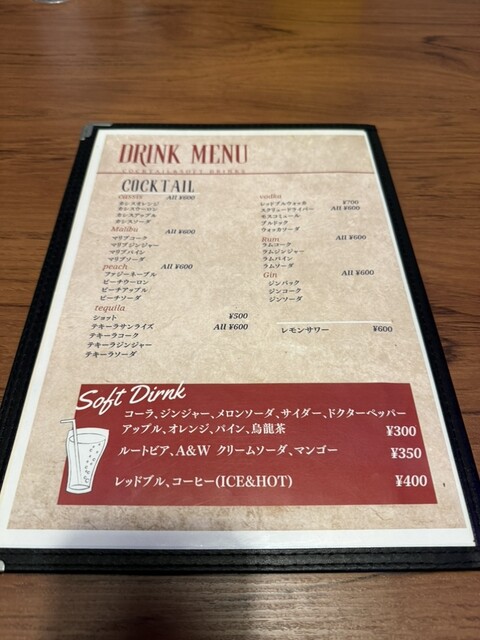 DRINK MENU
COCKTAIL&SOFT DRINKS
COCKTAIL
cassis All ¥600
カシスオレンジ
カシスウーロン
カシスアップル
カシスソーダ
Malibu All ¥600
マリブコーク
マリブジンジャー
マリブパイン
マリブソーダ
peach All ¥600
ファジーネーブル
ピーチウーロン
ピーチアップル
ピーチソーダ
tequila
ショット ¥500
テキーラサンライズ All ¥600
テキーラコーク
テキーラジンジャー
テキーラソーダ
vodka
レッドブルウォッカ ¥700
スクリュードライバー All ¥600
モスコミュール
ブルドック
ウォッカソーダ
Rum All ¥600
ラムコーク
ラムジンジャー
ラムパイン
ラムソーダ
Gin All ¥600
ジンバック
ジンコーク
ジンソーダ
レモンサワー ¥600
Soft Dirnk
コーラ、ジンジャー、メロンソーダ、サイダー、ドクターペッパー
アップル、オレンジ、パイン、烏龍茶 ¥300
ルートビア、A&W クリームソーダ、マンゴー ¥350
レッドブル、コーヒー(ICE&HOT) ¥400